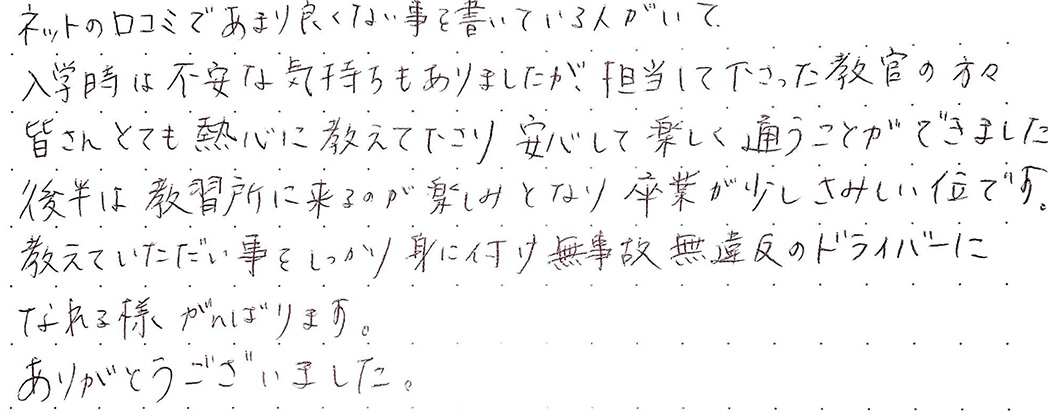 ネットの口コミであまり良くない事を書いている人がいて
入学時は不安な気持ちもありましたが、担当して下さった教官の方々
皆さんとても熱心に教えて下さり 安心して楽しく通うことができました
後半は教習所に来るのが楽しみとなり 卒業が少しさみしい位です。
教えていただい事をしっかり身に付け無事故無違反のドライバーに
なれる様がんばります。
ありがとうございました。